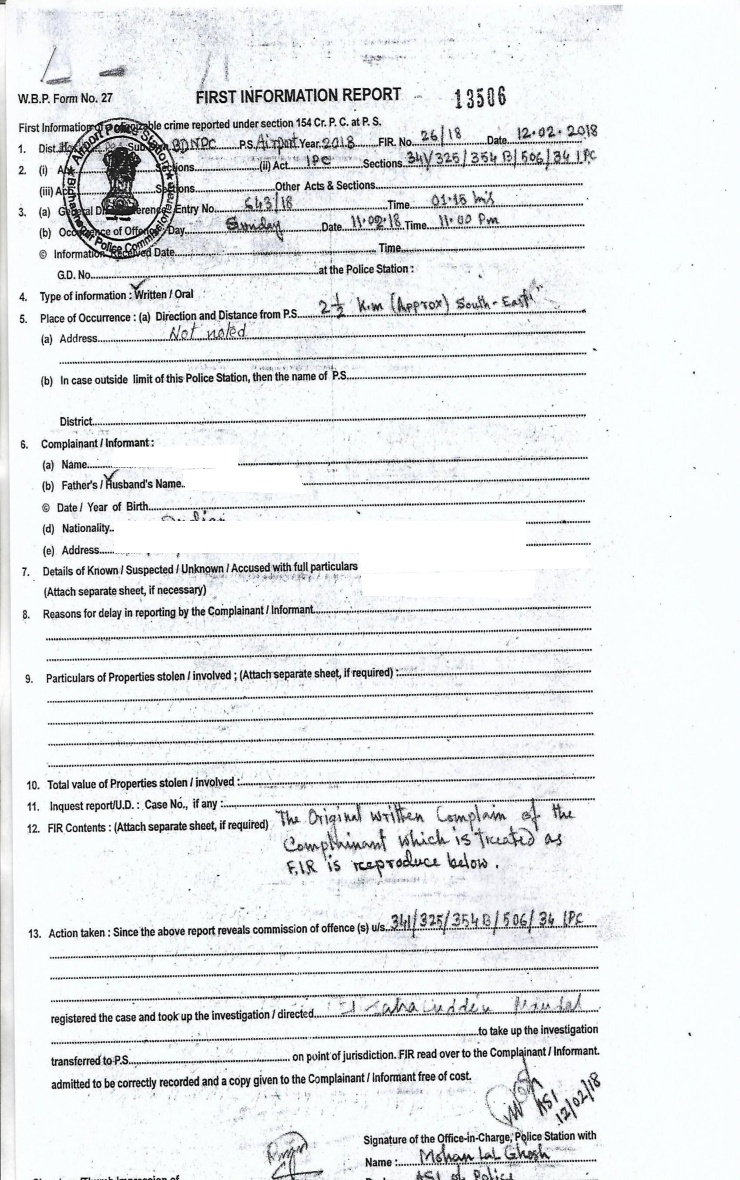 W.B.P. Form No. 27
FIRST INFORMATION REPORT - 13506
First Information of cognizable crime reported under section 154 Cr. P. C. at P. S.
1. Dist. Sub BDNPC P.S. Airport Year 2018 FIR. No. 26/18 Date 12.02.2018
2. (i) Act Sections (ii) Act IPC Sections 341/325/354 B/506/34 IPC
(iii) Act Sections Other Acts & Sections
3. (a) General Diary Reference: Entry No. 643/18 Time 01.15 hrs
(b) Occurrence of Offence: Day Sunday Date 11.02.18 Time 11.00 Pm
© Information Received Date Time
G.D. No. at the Police Station :
4. Type of information : Written / Oral
5. Place of Occurrence : (a) Direction and Distance from P.S. 2½ K.m (Approx) South-East
(a) Address Not noted
(b) In case outside limit of this Police Station, then the name of P.S.
District
6. Complainant / Informant :
(a) Name
(b) Father's / Husband's Name
© Date / Year of Birth
(d) Nationality
(e) Address
7. Details of Known / Suspected / Unknown / Accused with full particulars
(Attach separate sheet, if necessary)
8. Reasons for delay in reporting by the Complainant / Informant
9. Particulars of Properties stolen / involved ; (Attach separate sheet, if required) :
10. Total value of Properties stolen / involved :
11. Inquest report/U.D. : Case No., if any :
12. FIR Contents : (Attach separate sheet, if required) The Original written Complain of the
Complainant which is treated as
F.I.R is reproduce below.
13. Action taken : Since the above report reveals commission of offence (s) u/s. 341/325/354 B/506/34 IPC
registered the case and took up the investigation / directed SI Mandal
to take up the investigation
transferred to P.S. on point of jurisdiction. FIR read over to the Complainant / Informant.
admitted to be correctly recorded and a copy given to the Complainant / Informant free of cost.
ASI
12/02/18
Signature of the Office-in-Charge, Police Station with
Name : Mohan Lal Ghosh
ASI of Police